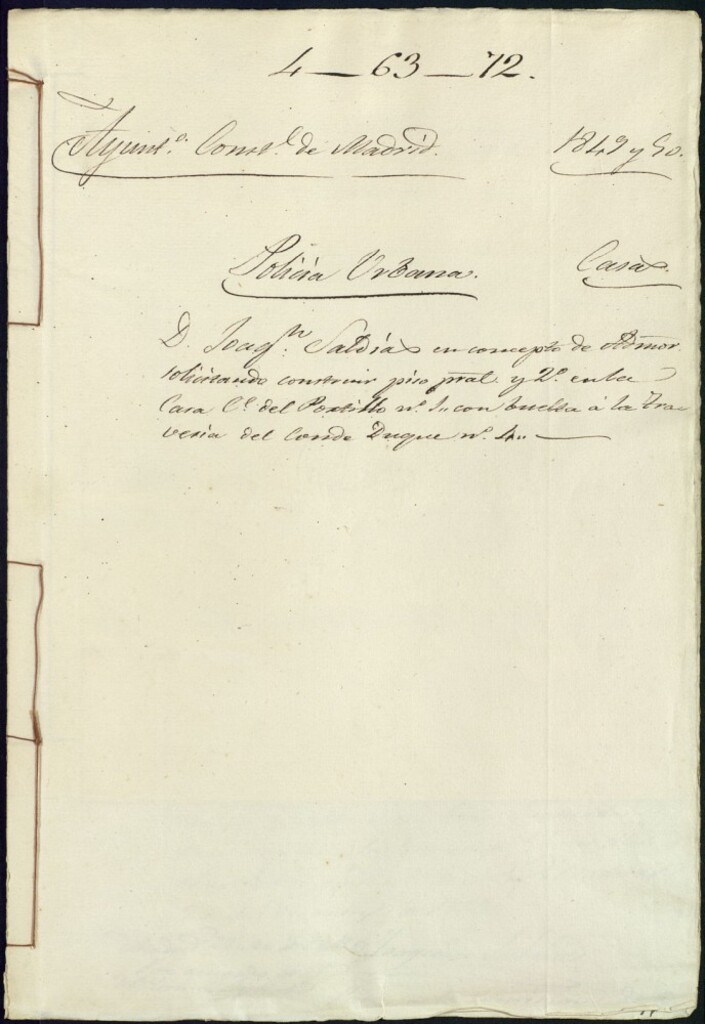 4—63—72.
Ayunt.º Const.l de Madrid. 1849 y 50.
Policia Urbana. Casas.
D. Joaq.n Saldias en concepto de Admor.
solicitando construir piso pral. y 2º en la
Casa C.e del Portillo nº. 1.. con buelta á la Tra-
vesia del Conde Duque nº. 4..